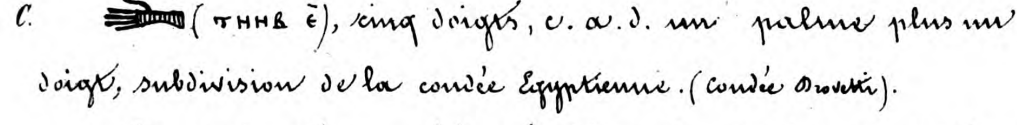 C. (ⲧⲏⲏⲃ ⲉ̄), cinq doigts, c. a. d. un palme plus un
doigt, subdivision de la coudée Egyptienne. (Coudée Drovetti).